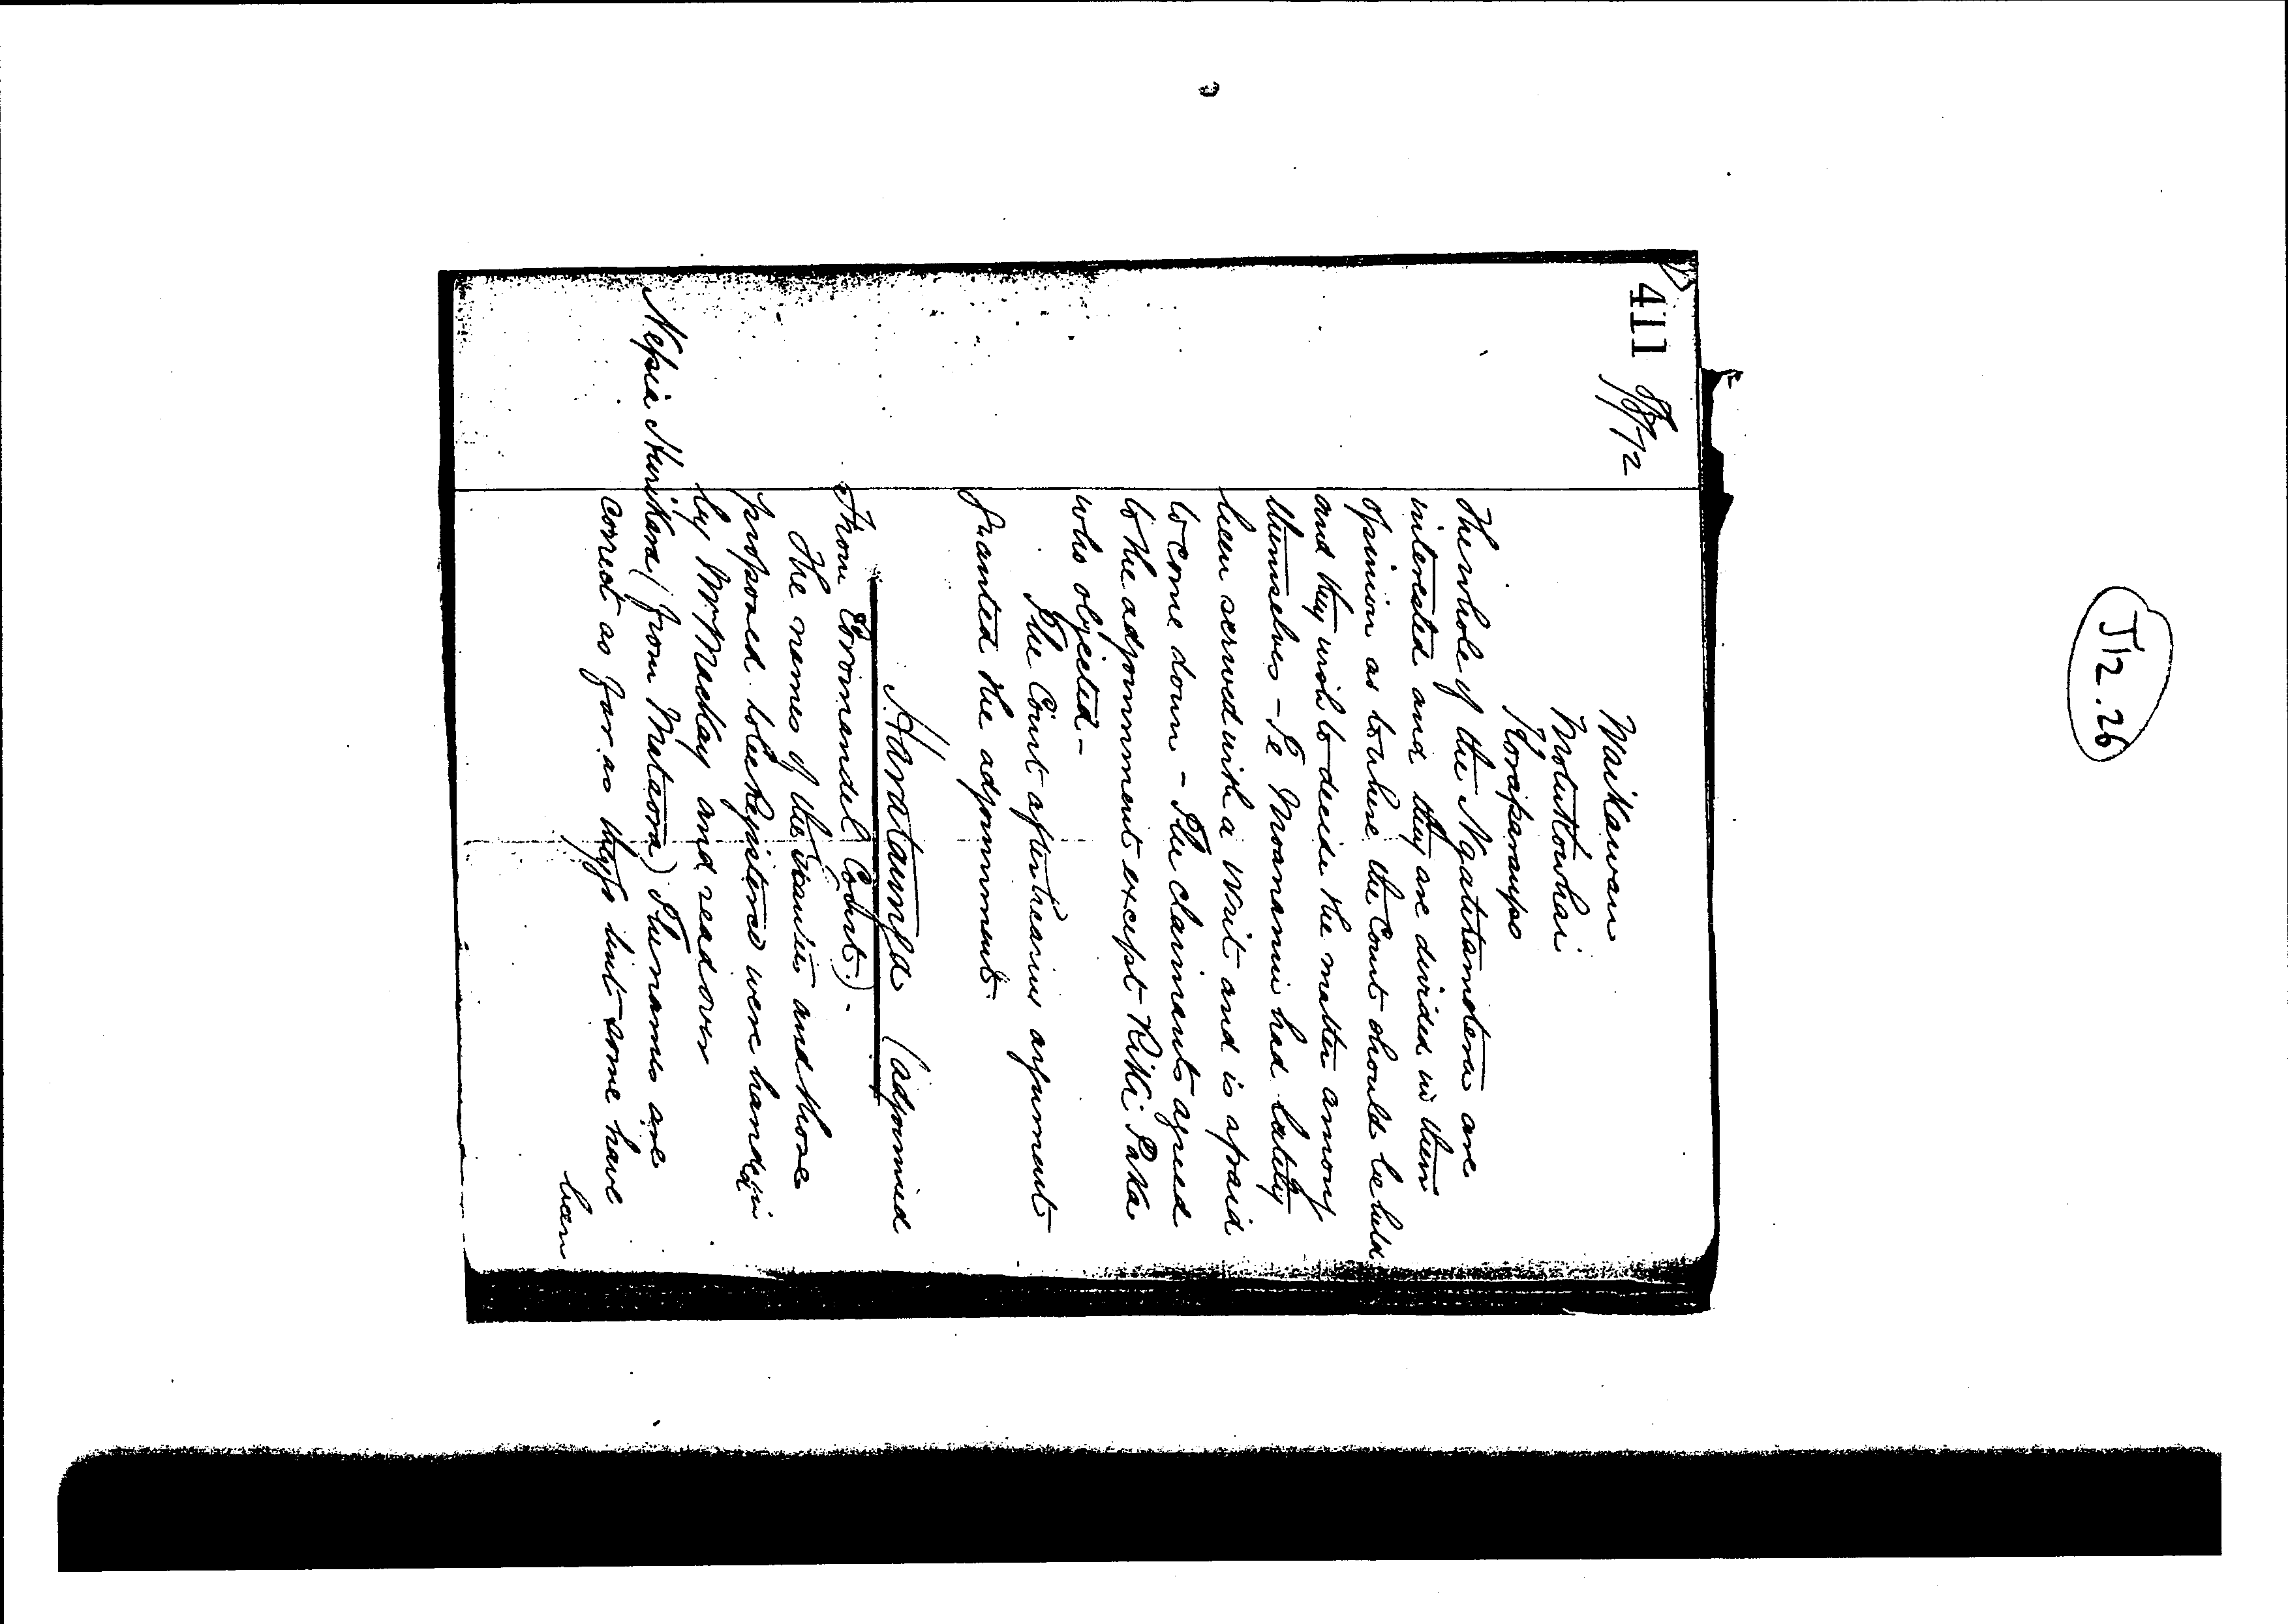 J12.26
411
Waikawau
Motukowhai
Horaparaupo
The whole of the Ngatitamatera are
interested and they are divided in their
opinion as to where the Court should be held
and they wish to decide the matter among
themselves - Te Moananui had lately
been served with a writ and is afraid
to come down - The claimants agreed
to the adjournment except Rikki Paka
who objected -
The Court after hearing argument
granted the adjournment
Harataunga (adjourned
from Coromandel Court). -
The names of the owners and those
proposed to be registered were handed in
by Mr Mackay and read over
Nepia Hurikara (from Mataora) The names are
correct as far as they go but some have
been